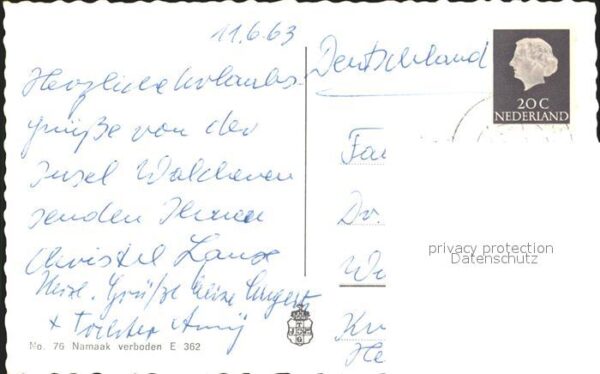 11.6.63
Herzliche Urlaubs-
grüße von der
Insel Walcheren
senden Ihnen
Christel Lange
Herzl. Grüße
+ Tochter
No. 76 Namaak verboden E 362
Deutschland
20 C
NEDERLAND
Fa
Dr.
W
K
He
privacy protection
Datenschutz